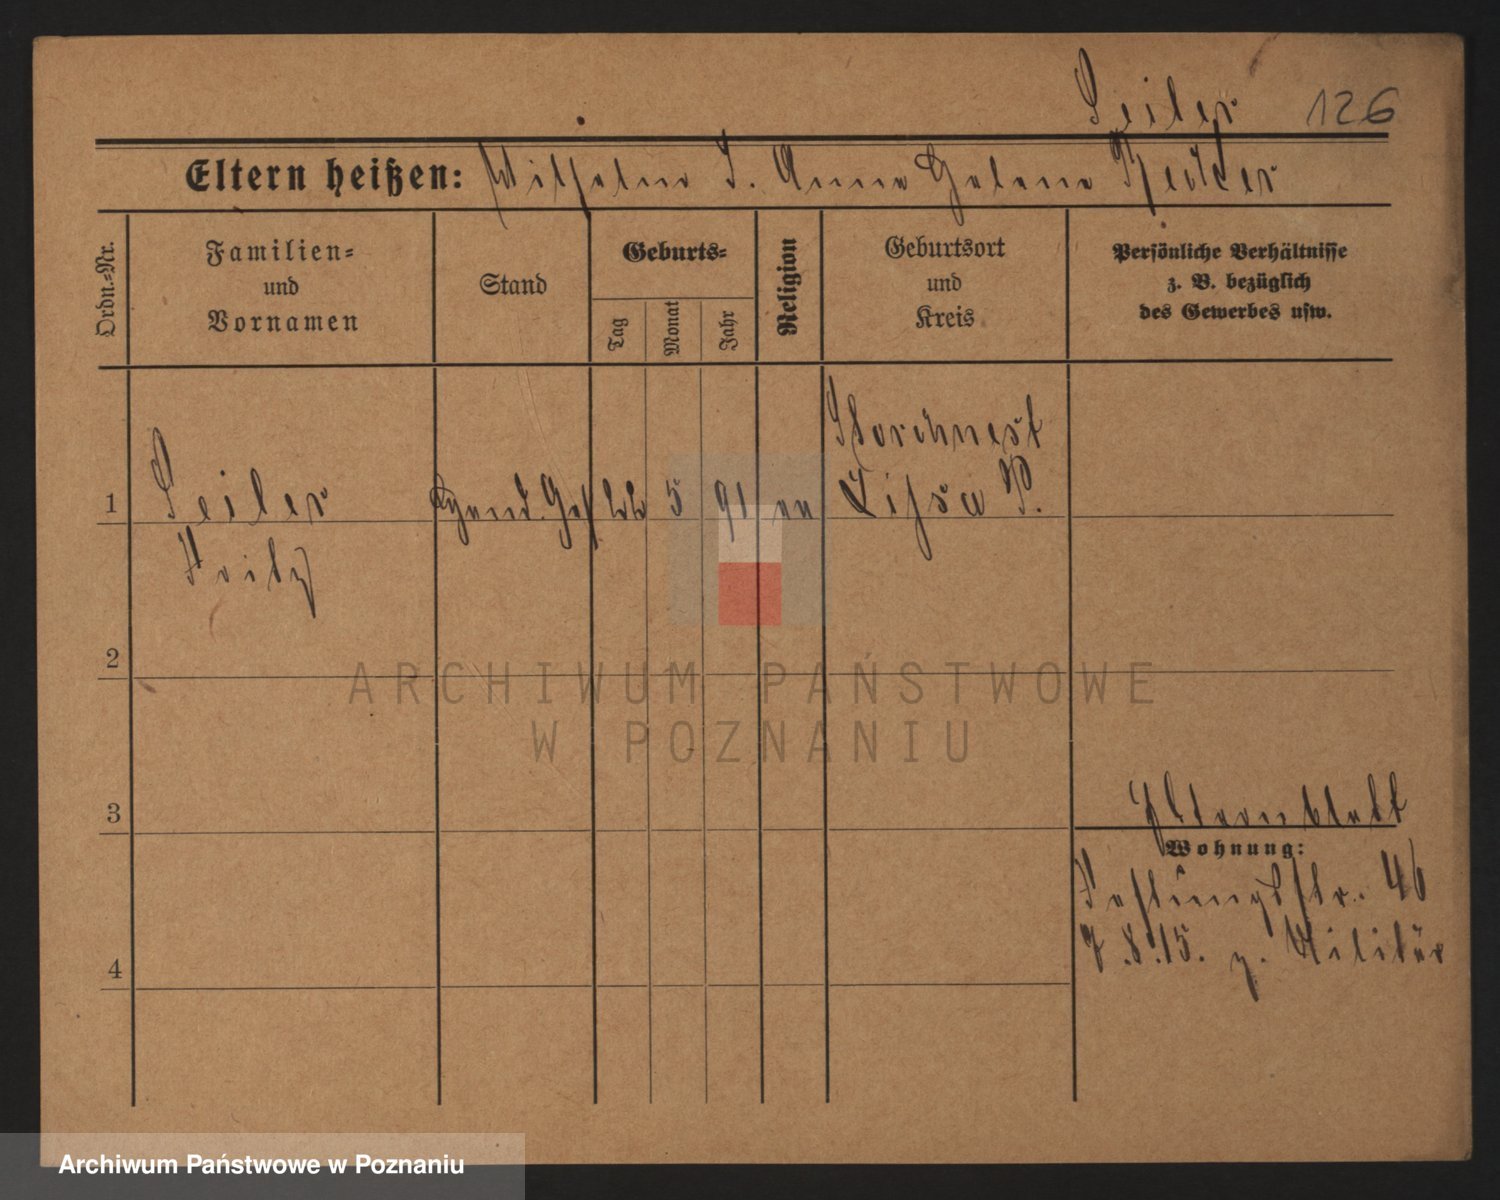 Seiler 126
Eltern heißen: Wilhelm S. Anna Helene
Ordn.-Nr.
Familien-
und
Vornamen
Stand
Geburts-
Tag
Monat
Jahr
Religion
Geburtsort
und
Kreis
Persönliche Verhältnisse
z. B. bezüglich
des Gewerbes usw.
Storchnest
1 Seiler 5 91 ev Lissa P.
Fritz
2
ARCHIWUM PAŃSTWOWE
W POZNANIU
3
Elternblatt
Wohnung:
Festungsstr. 46
7.8.15. z. Militär
4
Archiwum Państwowe w Poznaniu